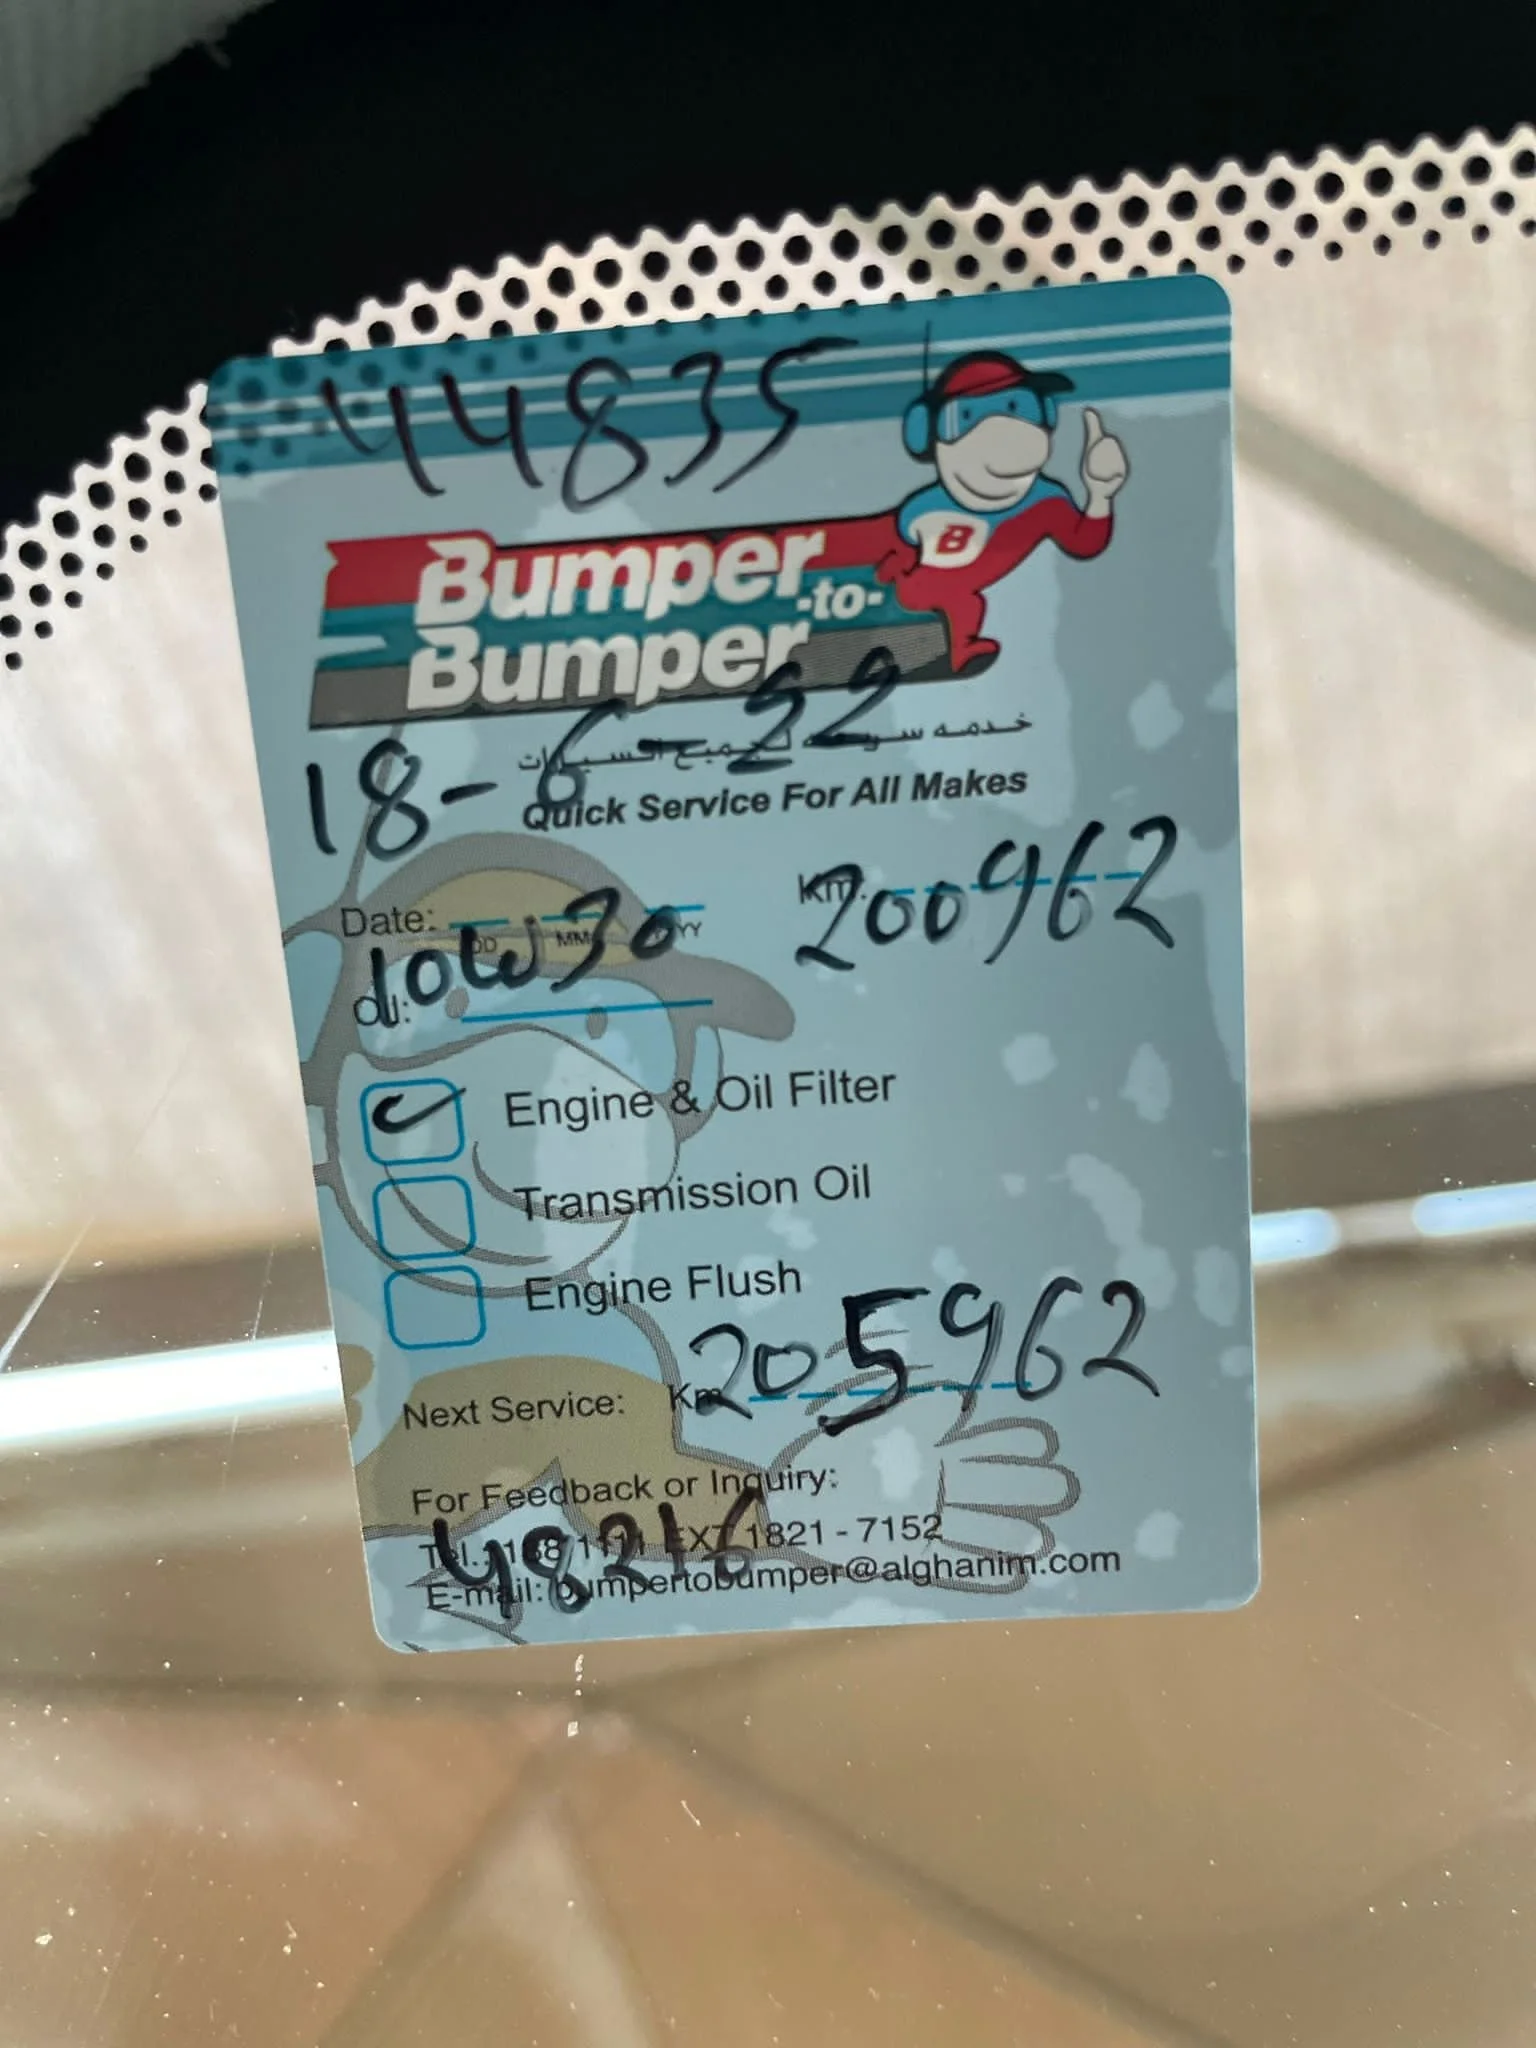 44835
B
Bumper
-to-
Bumper
18-6-22
خدمه سريعه لجميع السيارات
Quick Service For All Makes
Date: DD MM YY Km: 200962
Oil: 10W30
Engine & Oil Filter
Transmission Oil
Engine Flush
Next Service: Km 205962
For Feedback or Inquiry:
Tel.: EXT 1821 - 7152
48216
E-mail: bumpertobumper@alghanim.com